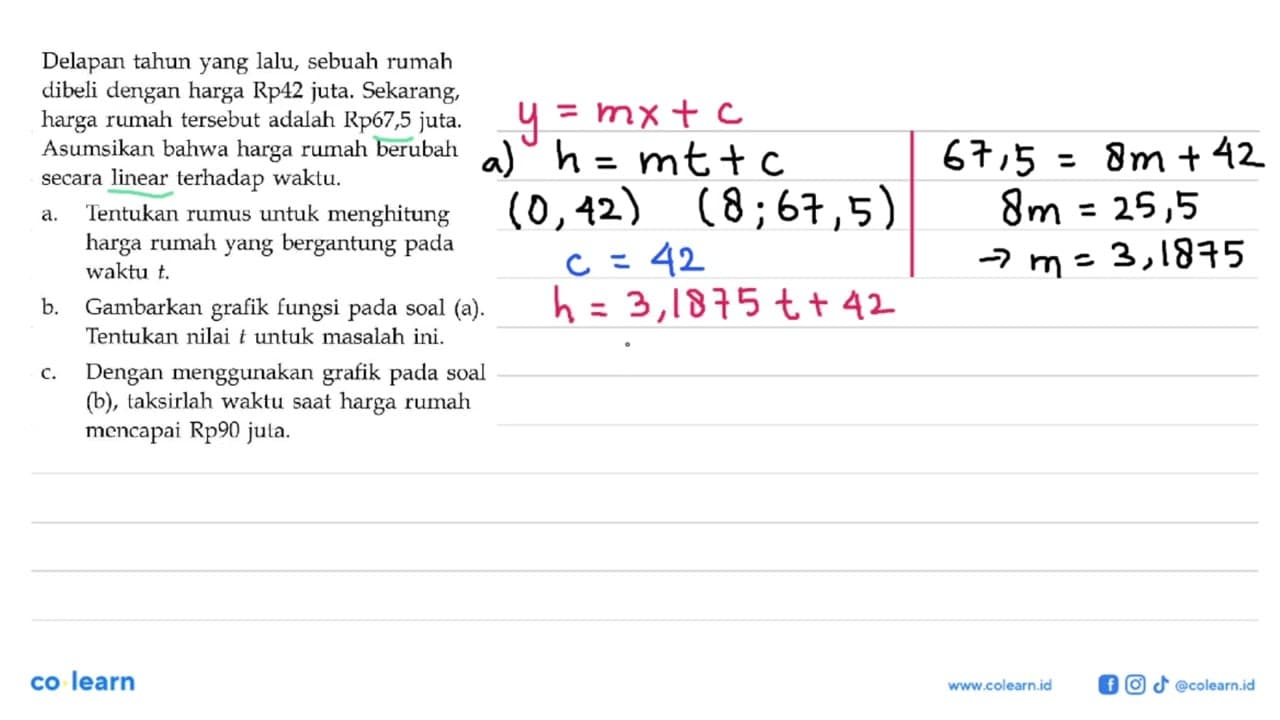 Delapan tahun yang lalu, sebuah rumah
dibeli dengan harga Rp42 juta. Sekarang,
harga rumah tersebut adalah Rp67,5 juta.
Asumsikan bahwa harga rumah berubah
secara linear terhadap waktu.
a. Tentukan rumus untuk menghitung
harga rumah yang bergantung pada
waktu t.
b. Gambarkan grafik fungsi pada soal (a).
Tentukan nilai t untuk masalah ini.
c. Dengan menggunakan grafik pada soal
(b), taksirlah waktu saat harga rumah
mencapai Rp90 juta.
y = mx + c
a) h = mt + c
(0, 42) (8; 67,5)
c = 42
h = 3,1875 t + 42
67,5 = 8m + 42
8m = 25,5
→ m = 3,1875
co learn
www.colearn.id
@colearn.id